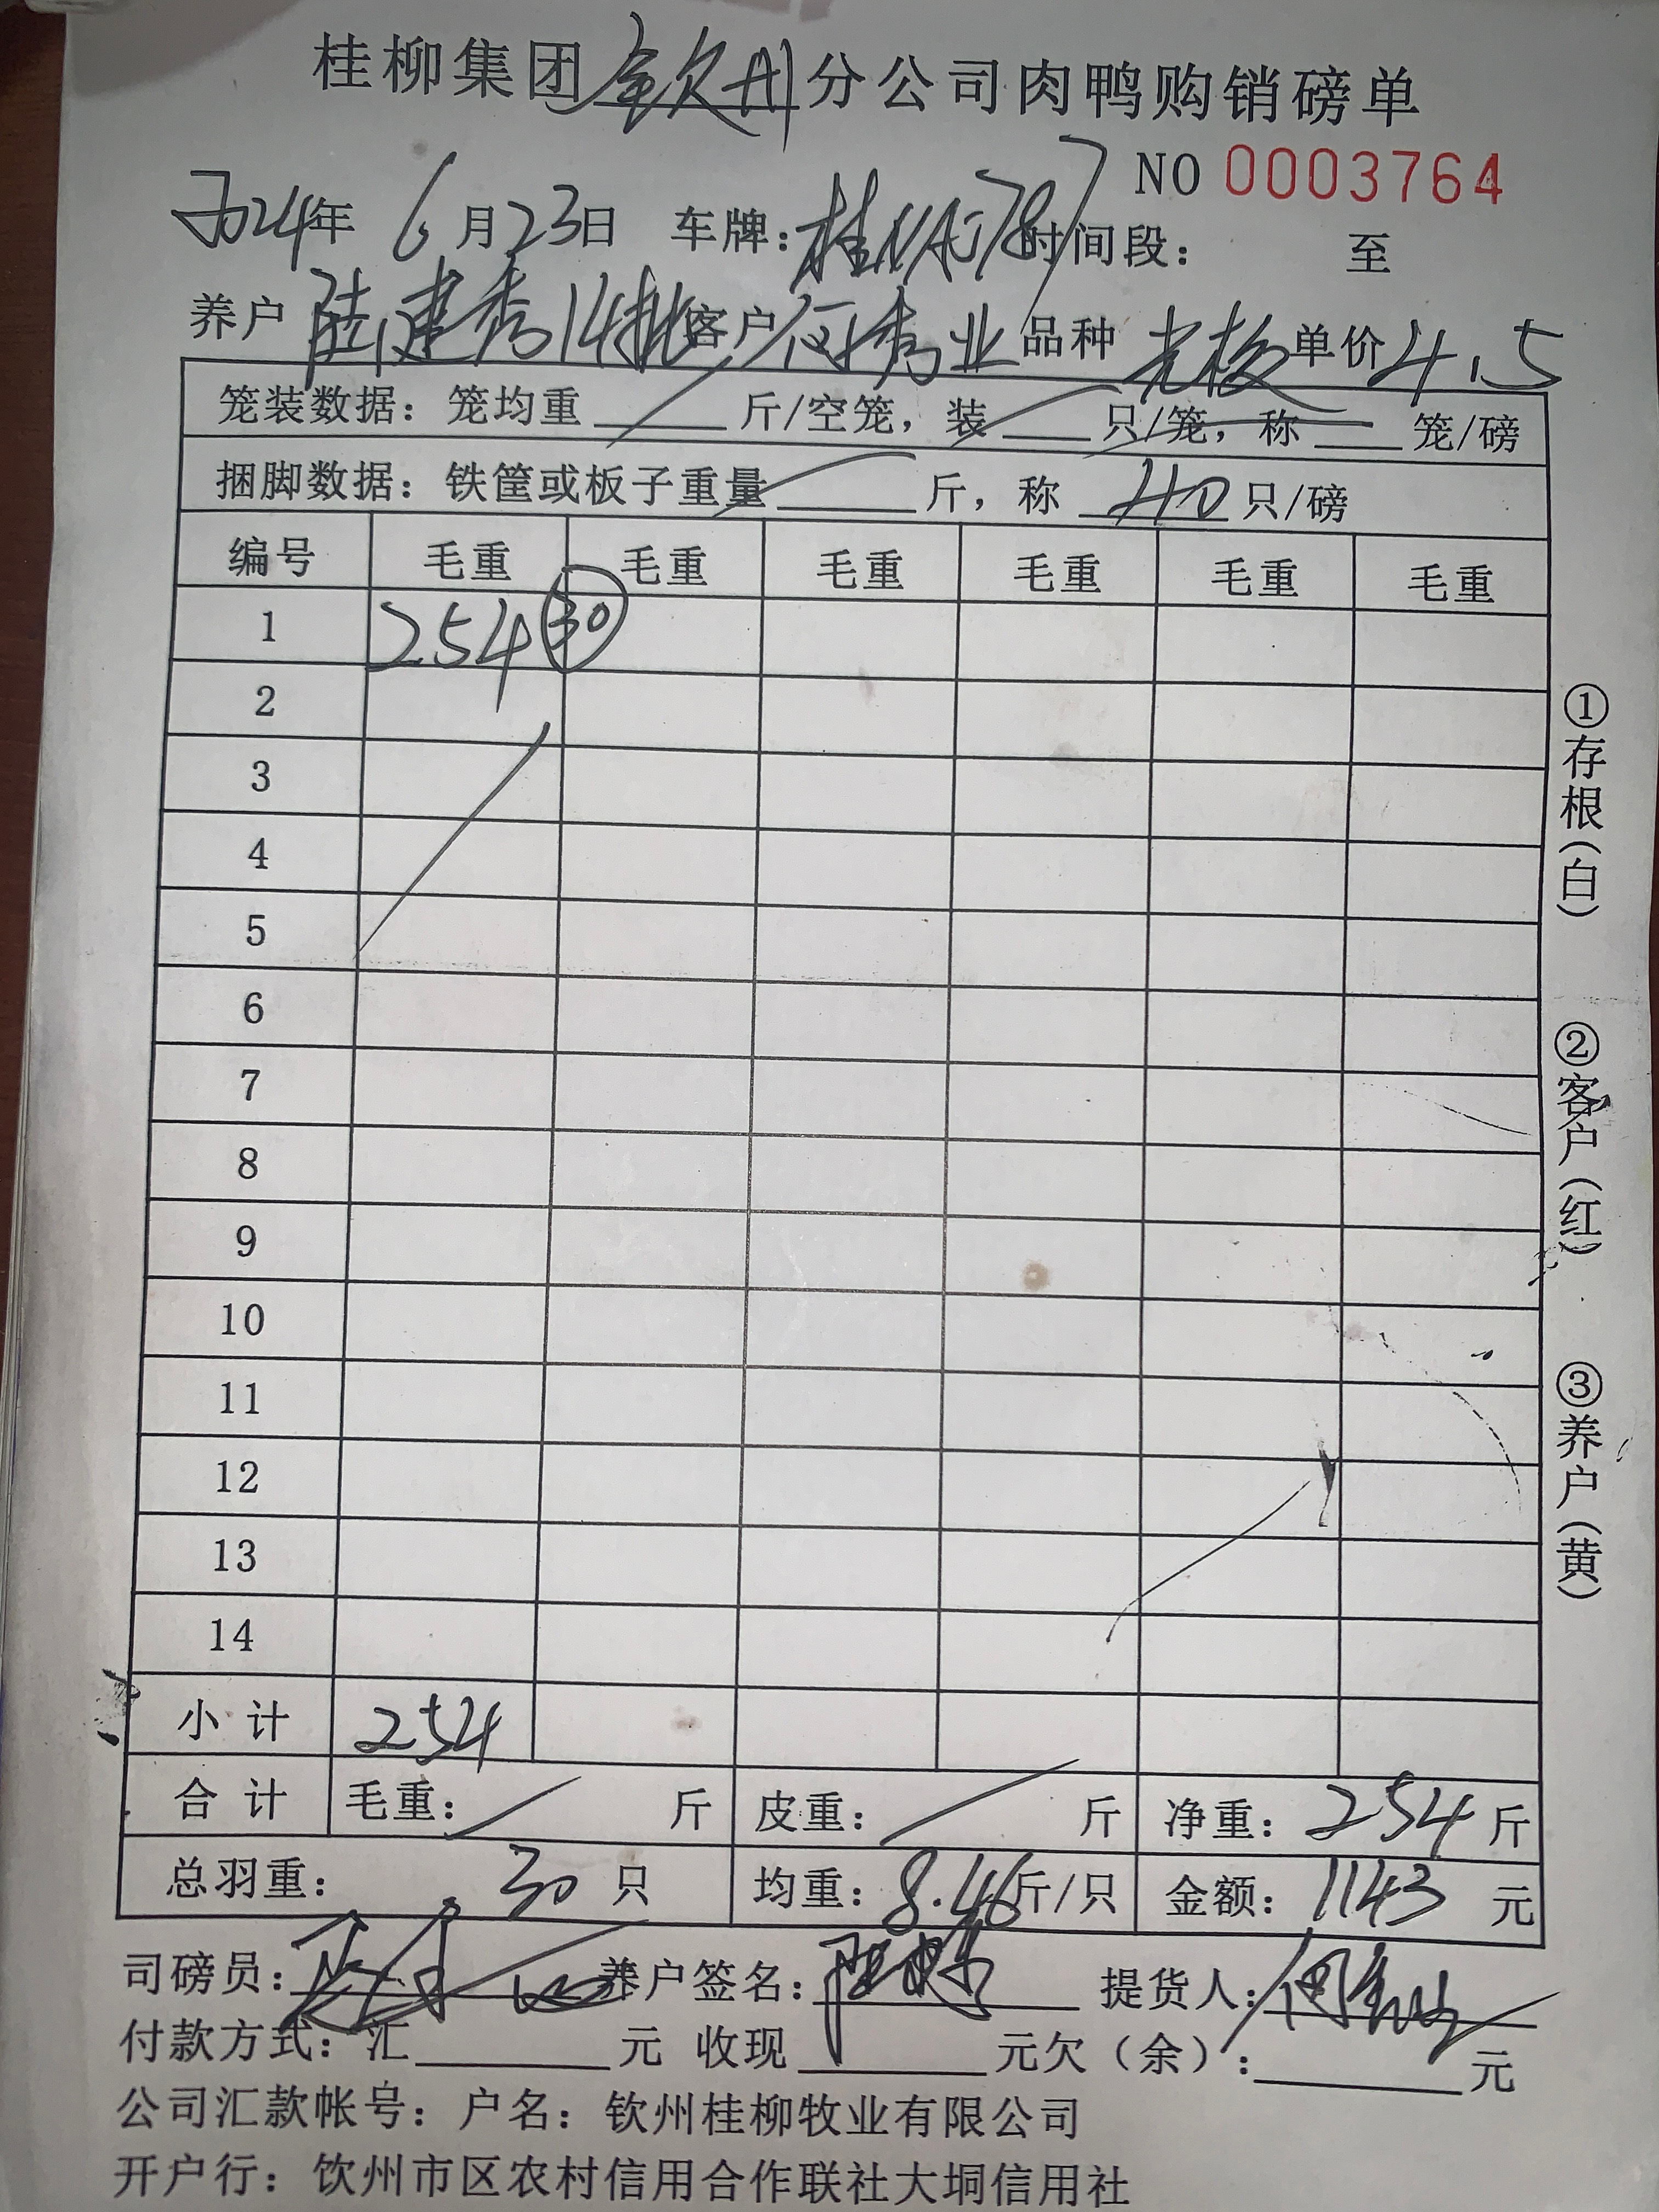 桂柳集团钦州分公司肉鸭购销磅单
NO 0003764
2024年 6月23日 车牌: 桂NA 787 时间段: 至
养户 陆建秀14批 客户 何秀业 品种 单价 4.5
笼装数据: 笼均重 斤/空笼, 装 只/笼, 称 笼/磅
捆脚数据: 铁筐或板子重量 斤, 称 40 只/磅
编号 毛重 毛重 毛重 毛重 毛重 毛重
1 254 30
2
3
4
5
6
7
8
9
10
11
12
13
14
小计 254
合计 毛重: 斤 皮重: 斤 净重: 254 斤
总羽重: 30 只 均重: 8.46 斤/只 金额: 1143 元
司磅员: 养户签名: 提货人:
付款方式: 汇 元 收现 元欠(余): 元
公司汇款帐号: 户名: 钦州桂柳牧业有限公司
开户行: 钦州市区农村信用合作联社大垌信用社
①存根(白)
②客户(红)
③养户(黄)